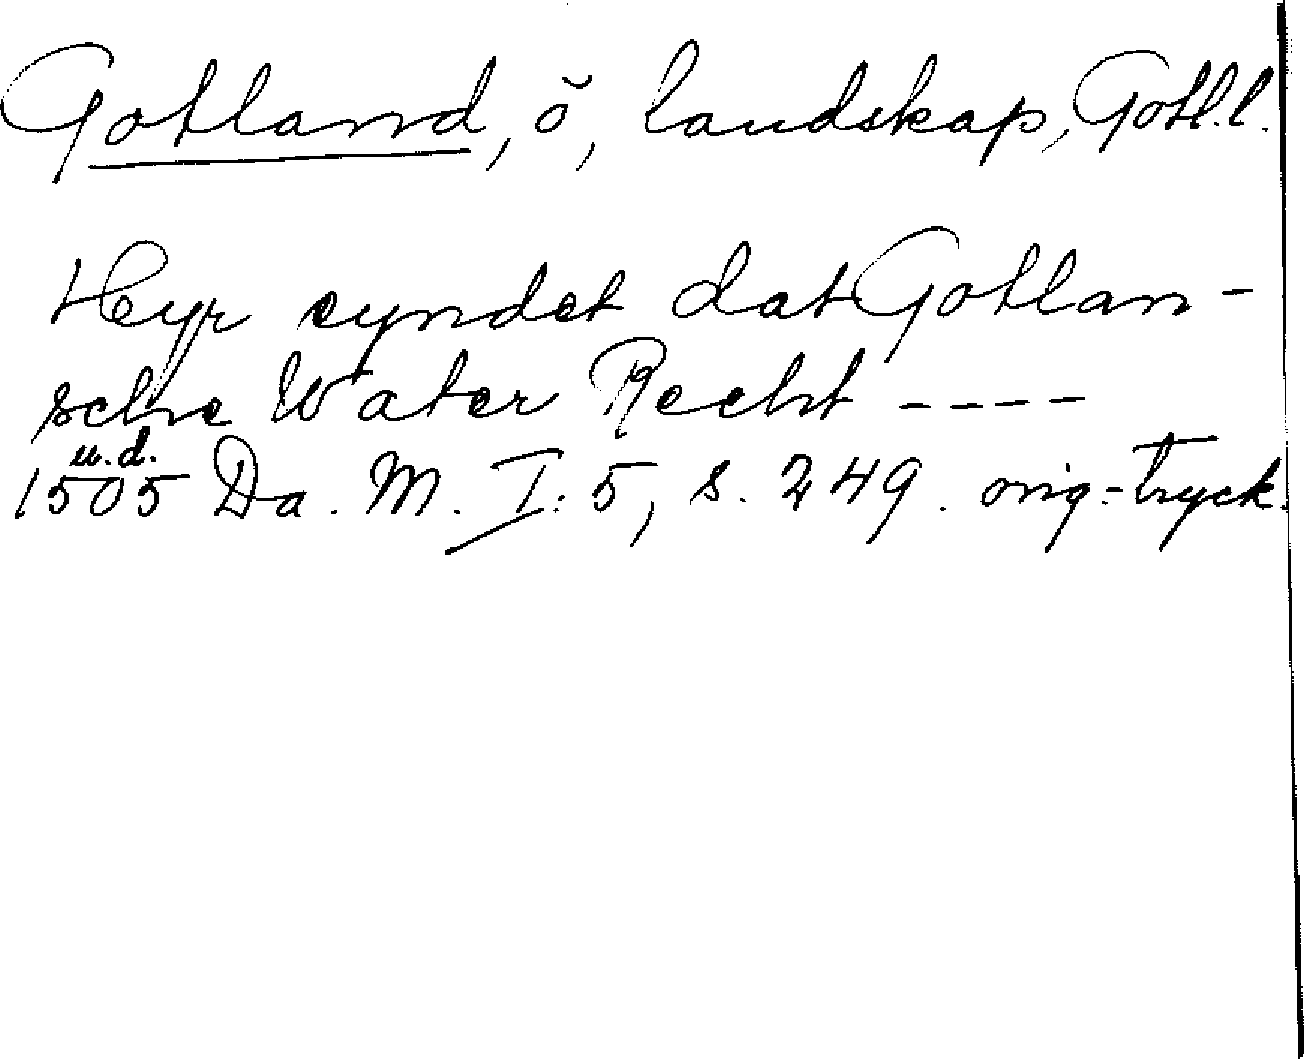 Gotland, ö, landskap, Gotl.l.
Heyr eyndet dat Gotlan-
sche Water Recht ----
u.d.
1505 Da. M. I: 5, s. 249. orig.-tryck.